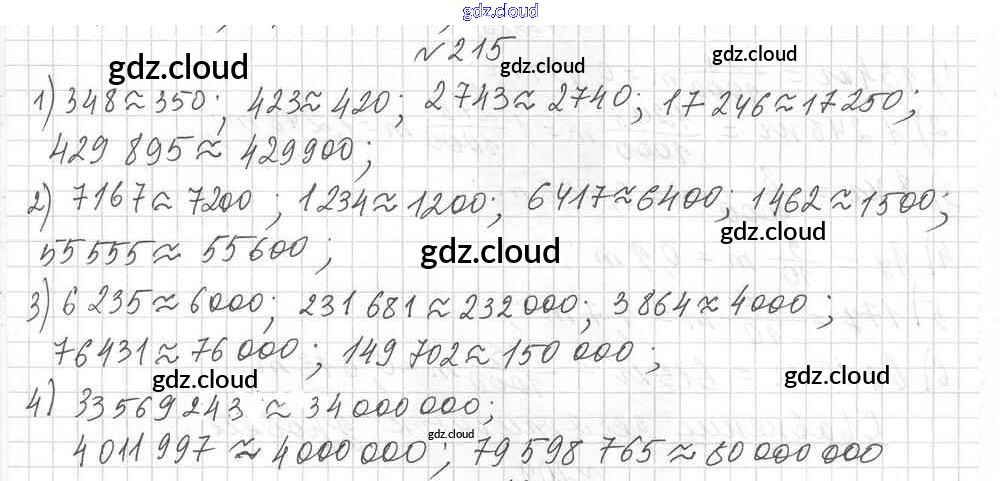 gdz.cloud
№ 215
gdz.cloud gdz.cloud gdz.cloud
1) 348 ≈ 350; 423 ≈ 420; 2743 ≈ 2740; 17 246 ≈ 17 250;
429 895 ≈ 429900;
2) 7167 ≈ 7200; 1234 ≈ 1200; 6417 ≈ 6400; 1462 ≈ 1500;
gdz.cloud
55 555 ≈ 55 600;
gdz.cloud
3) 6 235 ≈ 6000; 231 681 ≈ 232 000; 3 864 ≈ 4000;
76 431 ≈ 76 000; 149 702 ≈ 150 000;
gdz.cloud gdz.cloud
4) 33 569 243 ≈ 34 000 000;
gdz.cloud
4 011 997 ≈ 4 000 000; 79 598 765 ≈ 80 000 000